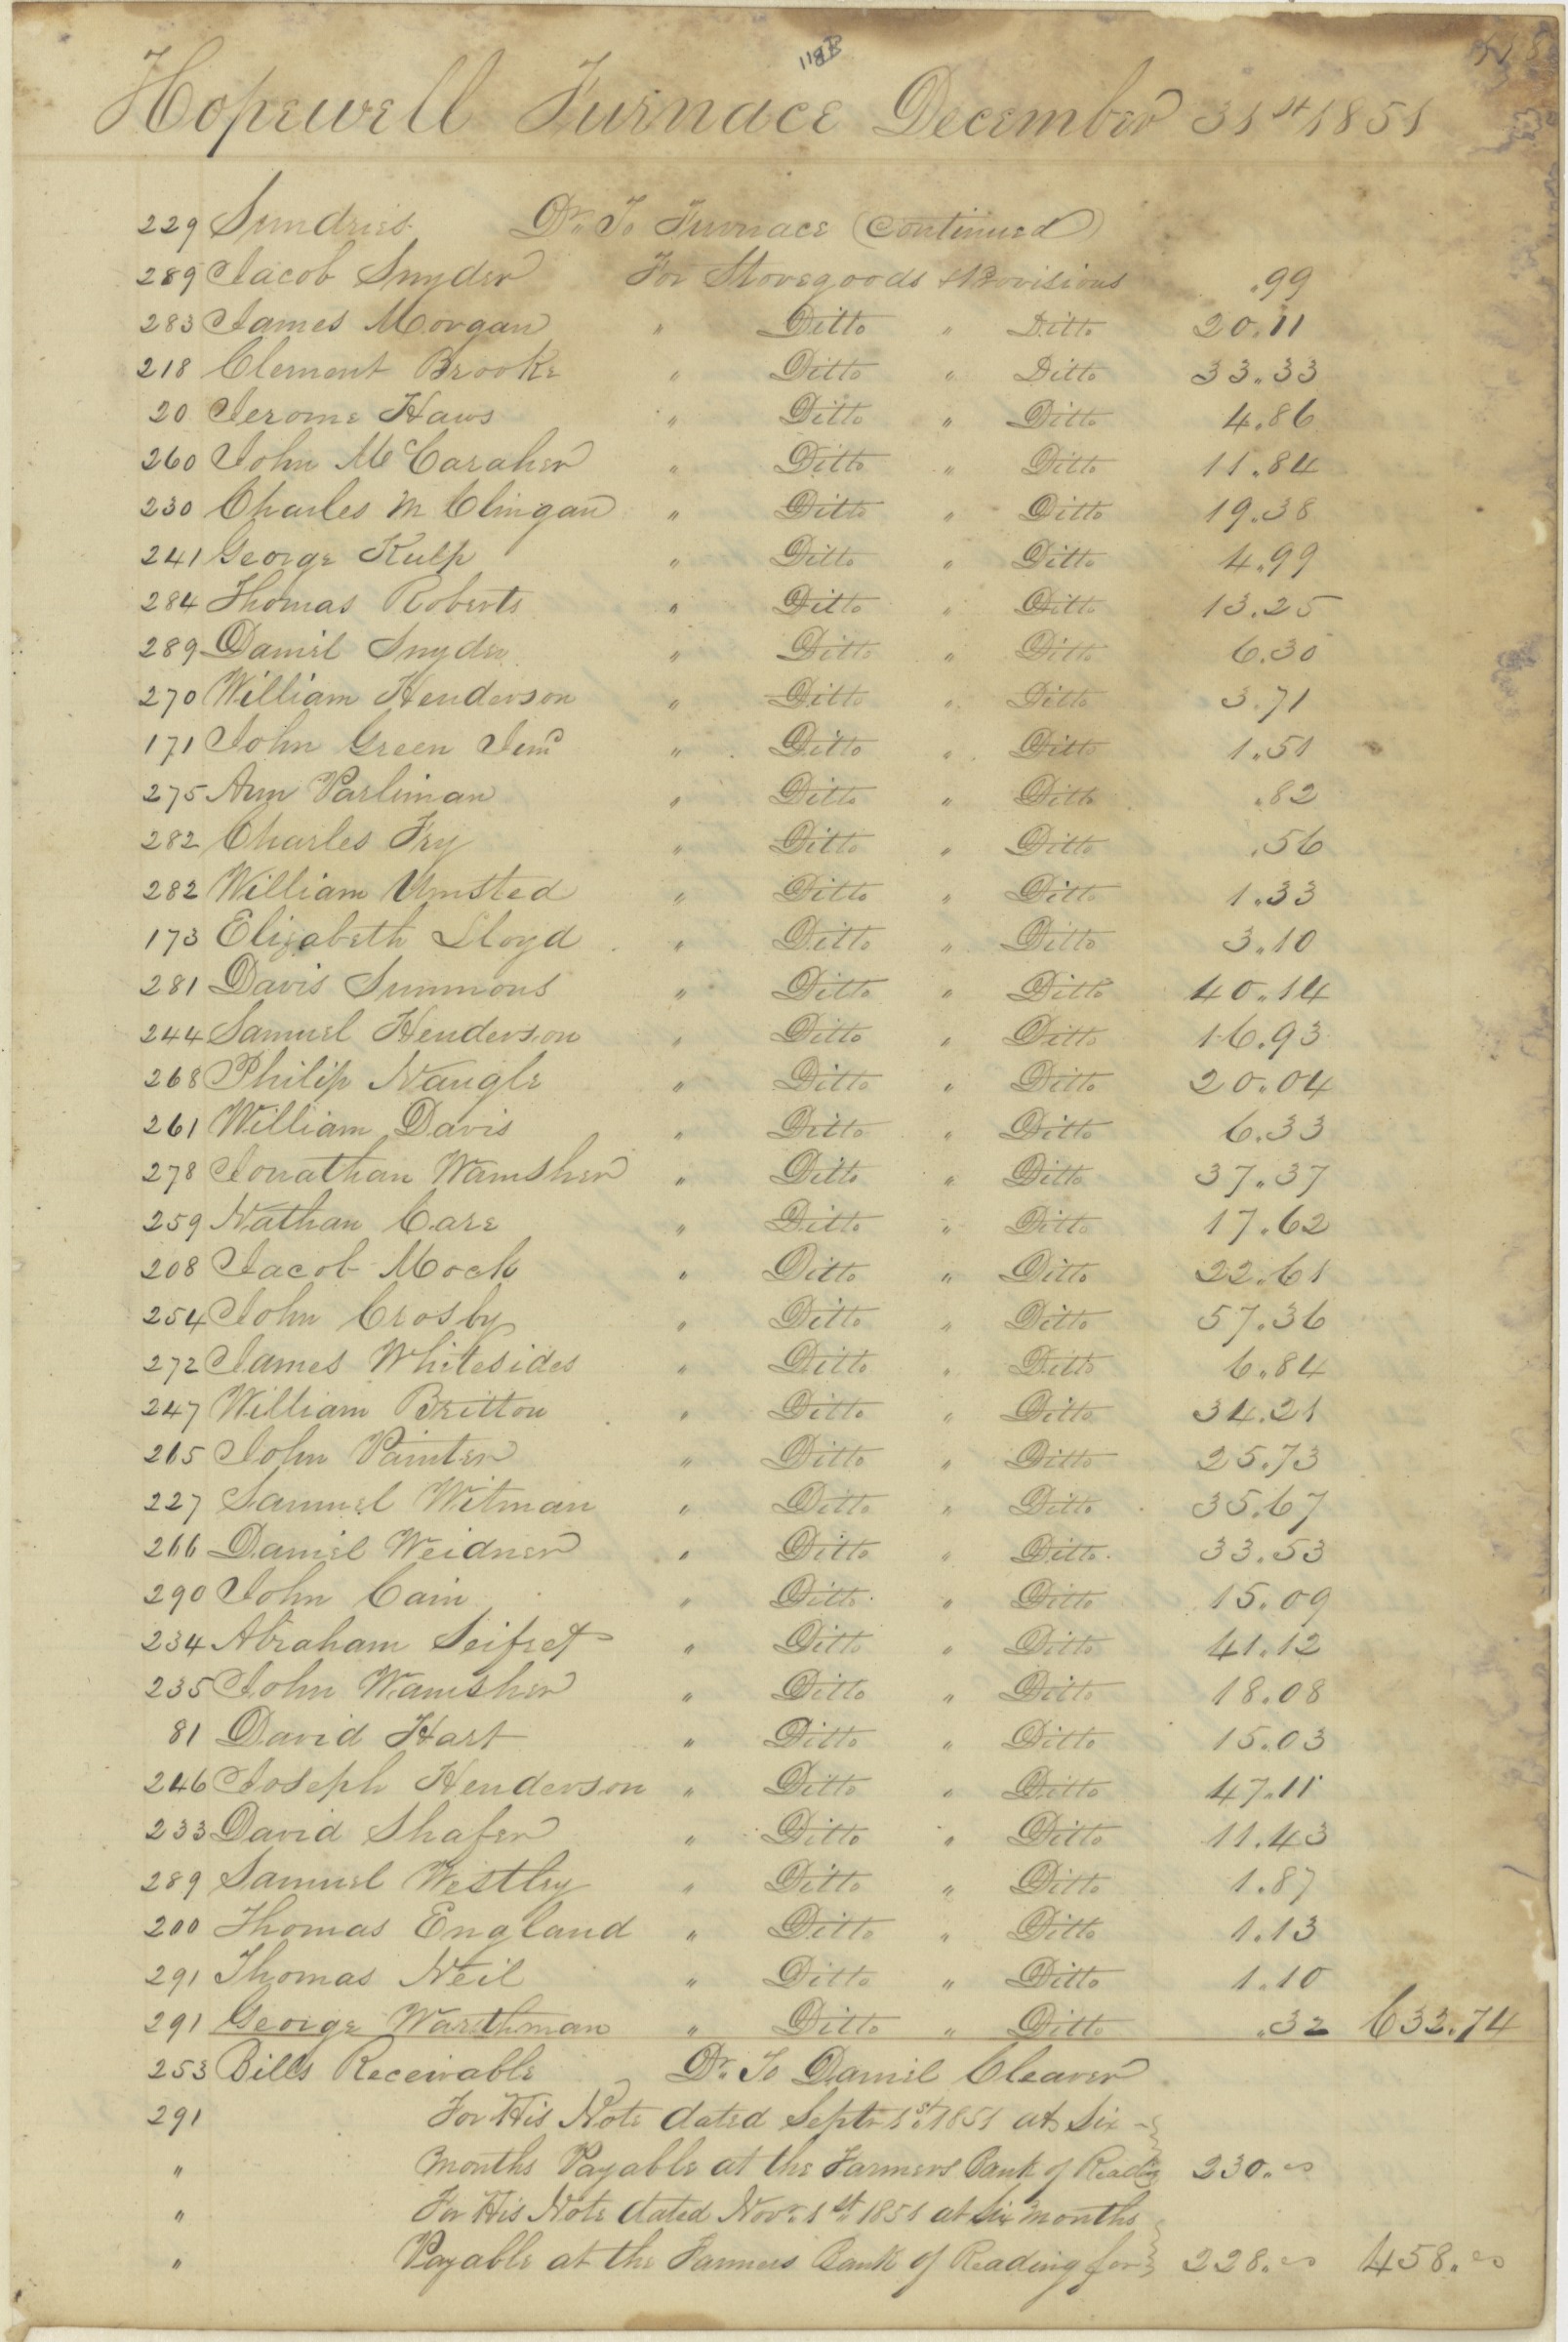 118B
Hopewell Furnace December 31st 1851
229 Sundries Dr. To Furnace (Continued)
289 Jacob Snyder For Storegoods & Provisions .99
283 James Morgan " Ditto " Ditto 20.11
218 Clement Brooke " Ditto " Ditto 33.33
20 Jerome Haws " Ditto " Ditto 4.86
260 John McCaraher " Ditto " Ditto 11.84
230 Charles M Clingan " Ditto " Ditto 19.38
241 George Kulp " Ditto " Ditto 4.99
284 Thomas Roberts " Ditto " Ditto 13.25
289 Daniel Snyder " Ditto " Ditto 6.30
270 William Henderson " Ditto " Ditto 3.71
171 John Green Senr " Ditto " Ditto 1.51
275 Ann Parliman " Ditto " Ditto .82
282 Charles Fry " Ditto " Ditto .56
282 William Umsted " Ditto " Ditto 1.33
173 Elizabeth Lloyd " Ditto " Ditto 3.10
281 Davis Simmons " Ditto " Ditto 40.14
244 Samuel Henderson " Ditto " Ditto 16.93
268 Philip Naugle " Ditto " Ditto 20.04
261 William Davis " Ditto " Ditto 6.33
278 Jonathan Wamsher " Ditto " Ditto 37.37
259 Nathan Care " Ditto " Ditto 17.62
208 Jacob Mock " Ditto " Ditto 22.61
254 John Crosby " Ditto " Ditto 57.36
272 James Whitesides " Ditto " Ditto 6.84
247 William Britton " Ditto " Ditto 34.21
265 John Painter " Ditto " Ditto 25.73
227 Samuel Witman " Ditto " Ditto 35.67
266 Daniel Weidner " Ditto " Ditto 33.53
290 John Cain " Ditto " Ditto 15.09
234 Abraham Seifret " Ditto " Ditto 41.12
235 John Wamsher " Ditto " Ditto 18.08
81 David Hart " Ditto " Ditto 15.03
246 Joseph Henderson " Ditto " Ditto 47.11
233 David Shafer " Ditto " Ditto 11.43
289 Samuel Westley " Ditto " Ditto 1.87
200 Thomas England " Ditto " Ditto 1.13
291 Thomas Neil " Ditto " Ditto 1.10
291 George Warthman " Ditto " Ditto .32 633.74
253 Bills Receivable Dr. To Daniel Cleaver
291 For His Note dated Septr 1st 1851 at Six
" months Payable at the Farmers Bank of Readg 230.00
" For His Note dated Novr. 1st 1851 at Six months
" Payable at the Farmers Bank of Reading for 228.00 458.00